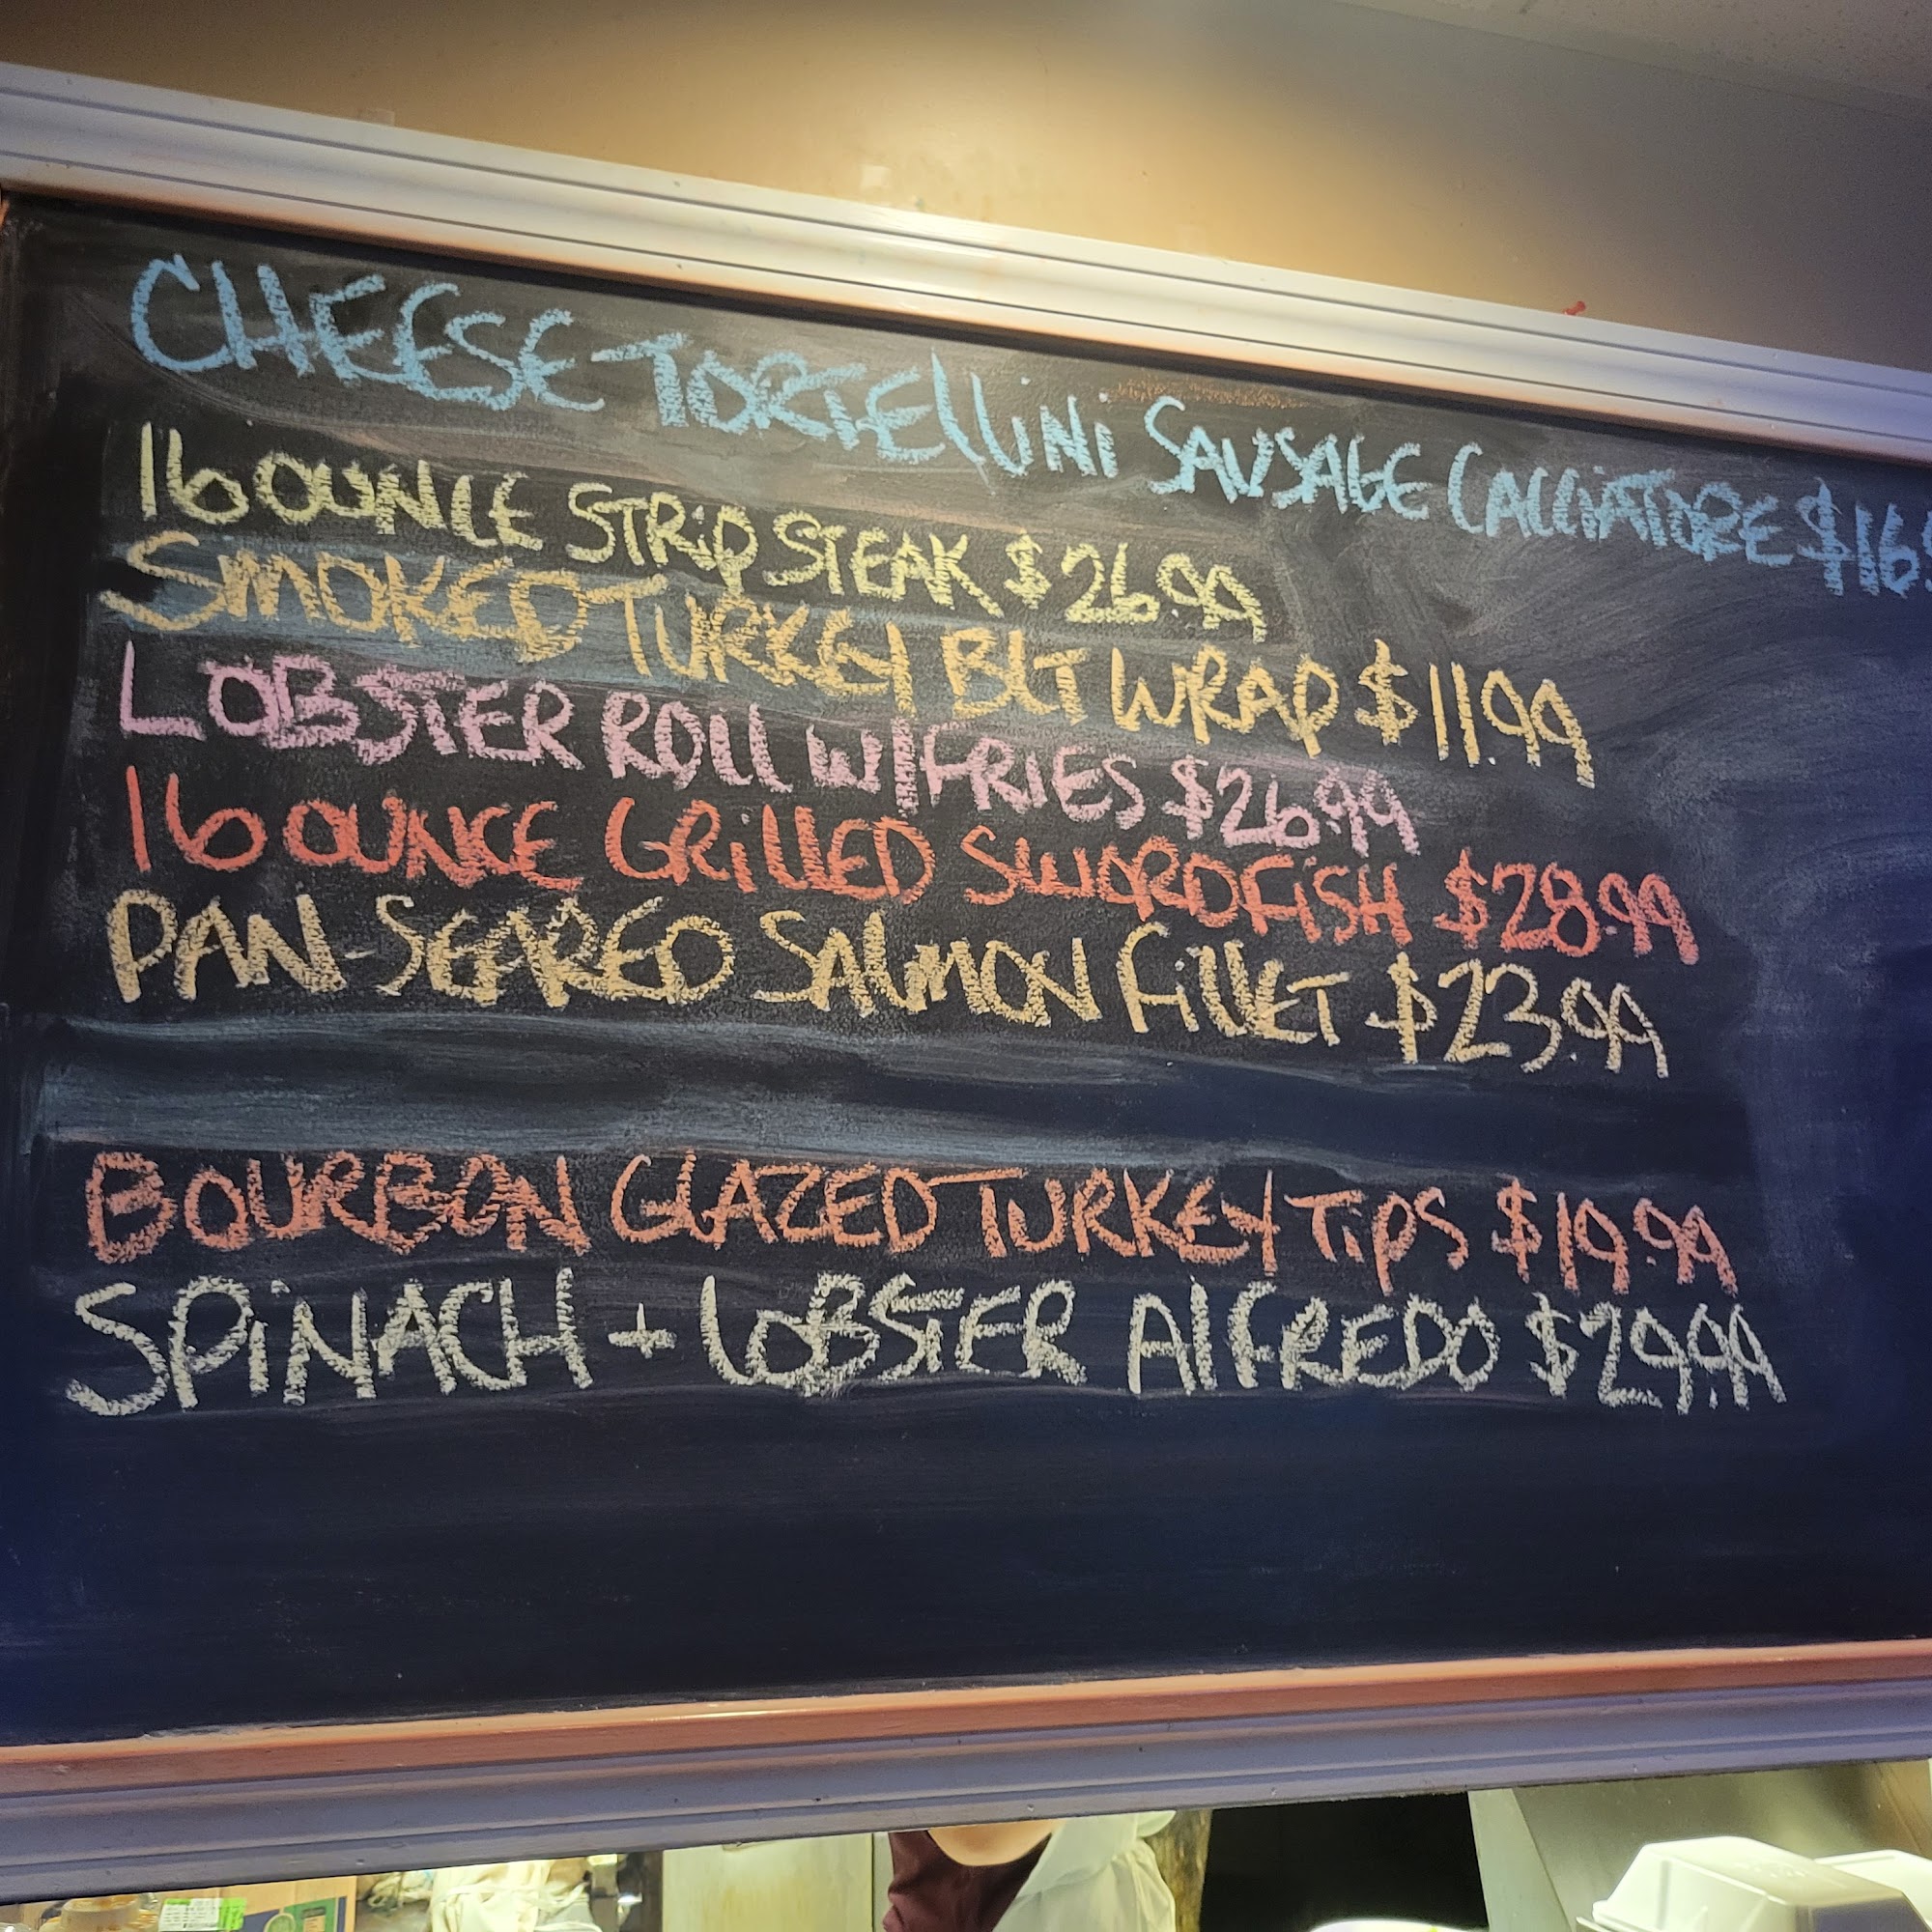 CHEESE TORTELLINI SAUSAGE CACCIATORE $16.
16 OUNCE STRIP STEAK $26.99
SMOKED TURKEY BLT WRAP $11.99
LOBSTER ROLL W/FRIES $26.99
16 OUNCE GRILLED SWORDFISH $28.99
PAN-SEARED SALMON FILLET $23.99
BOURBON GLAZED TURKEY TIPS $19.99
SPINACH + LOBSTER ALFREDO $29.99